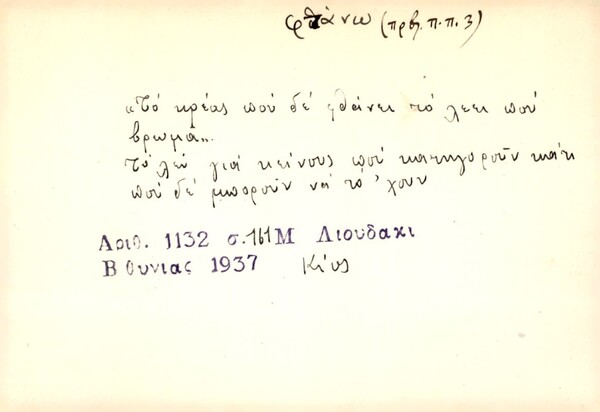 φθάνω (πρβ. π.π. 3)
«Τό κρέας πού δέ φθάνει τό λέει πού
βρωμᾶ».
τό λέν γιά κείνους πού κατηγοροῦν κάτι
πού δέ μποροῦν νά τό 'χουν
Αριθ. 1132 σ. 161 Μ Λιουδακι
Β θυνιας 1937 Κίος